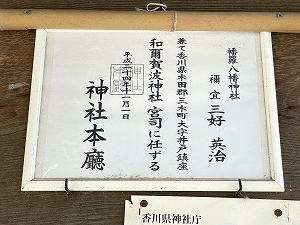 幡羅八幡神社
禰宜 三好 英治
兼て香川県木田郡三木町大字井戸鎮座
和爾賀波神社宮司に任ずる
平成二十四年十一月一日
神社本廳
香川県神社庁